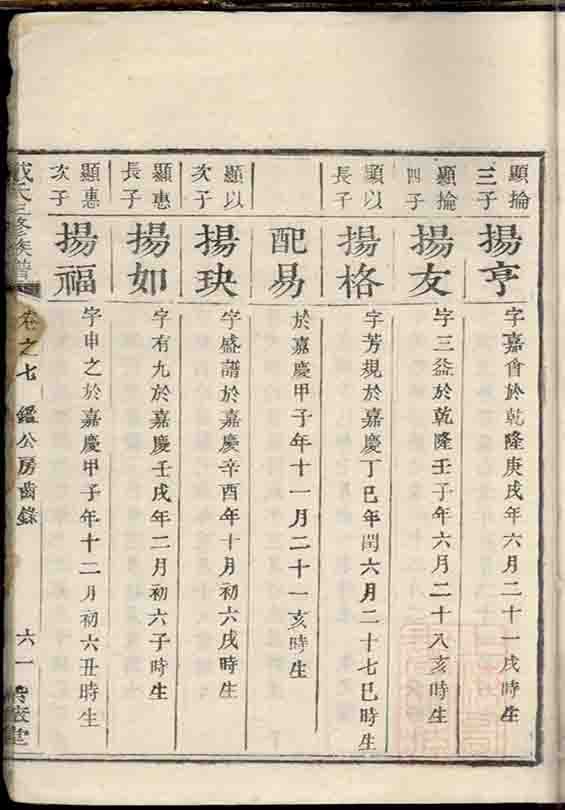 顯掄三子
揚亨
字嘉會於乾隆庚戌年六月二十一戌時生
顯掄四子
揚友
字三益於乾隆壬子年六月二十八亥時生
顯以長子
揚格
字芳規於嘉慶丁巳年閏六月二十七巳時生
配易
於嘉慶甲子年十一月二十一亥時生
顯以次子
揚玦
字盛譜於嘉慶辛酉年十月初六戌時生
顯惠長子
揚如
字有九於嘉慶壬戌年二月初六子時生
顯惠次子
揚福
字申之於嘉慶甲子年十二月初六丑時生
氏三修族譜
卷之七 鑑公房齒錄 六一